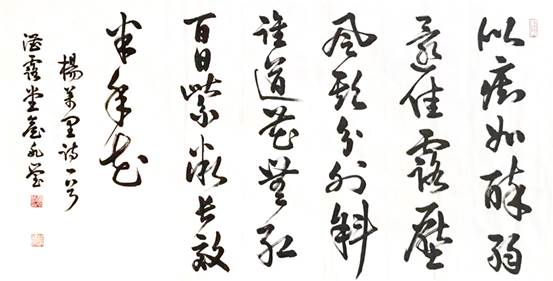 似痴如醉弱
還佳露壓
風欺分外斜
誰道花無紅
百日紫薇長放
半年花
楊萬里詩一首
露堂